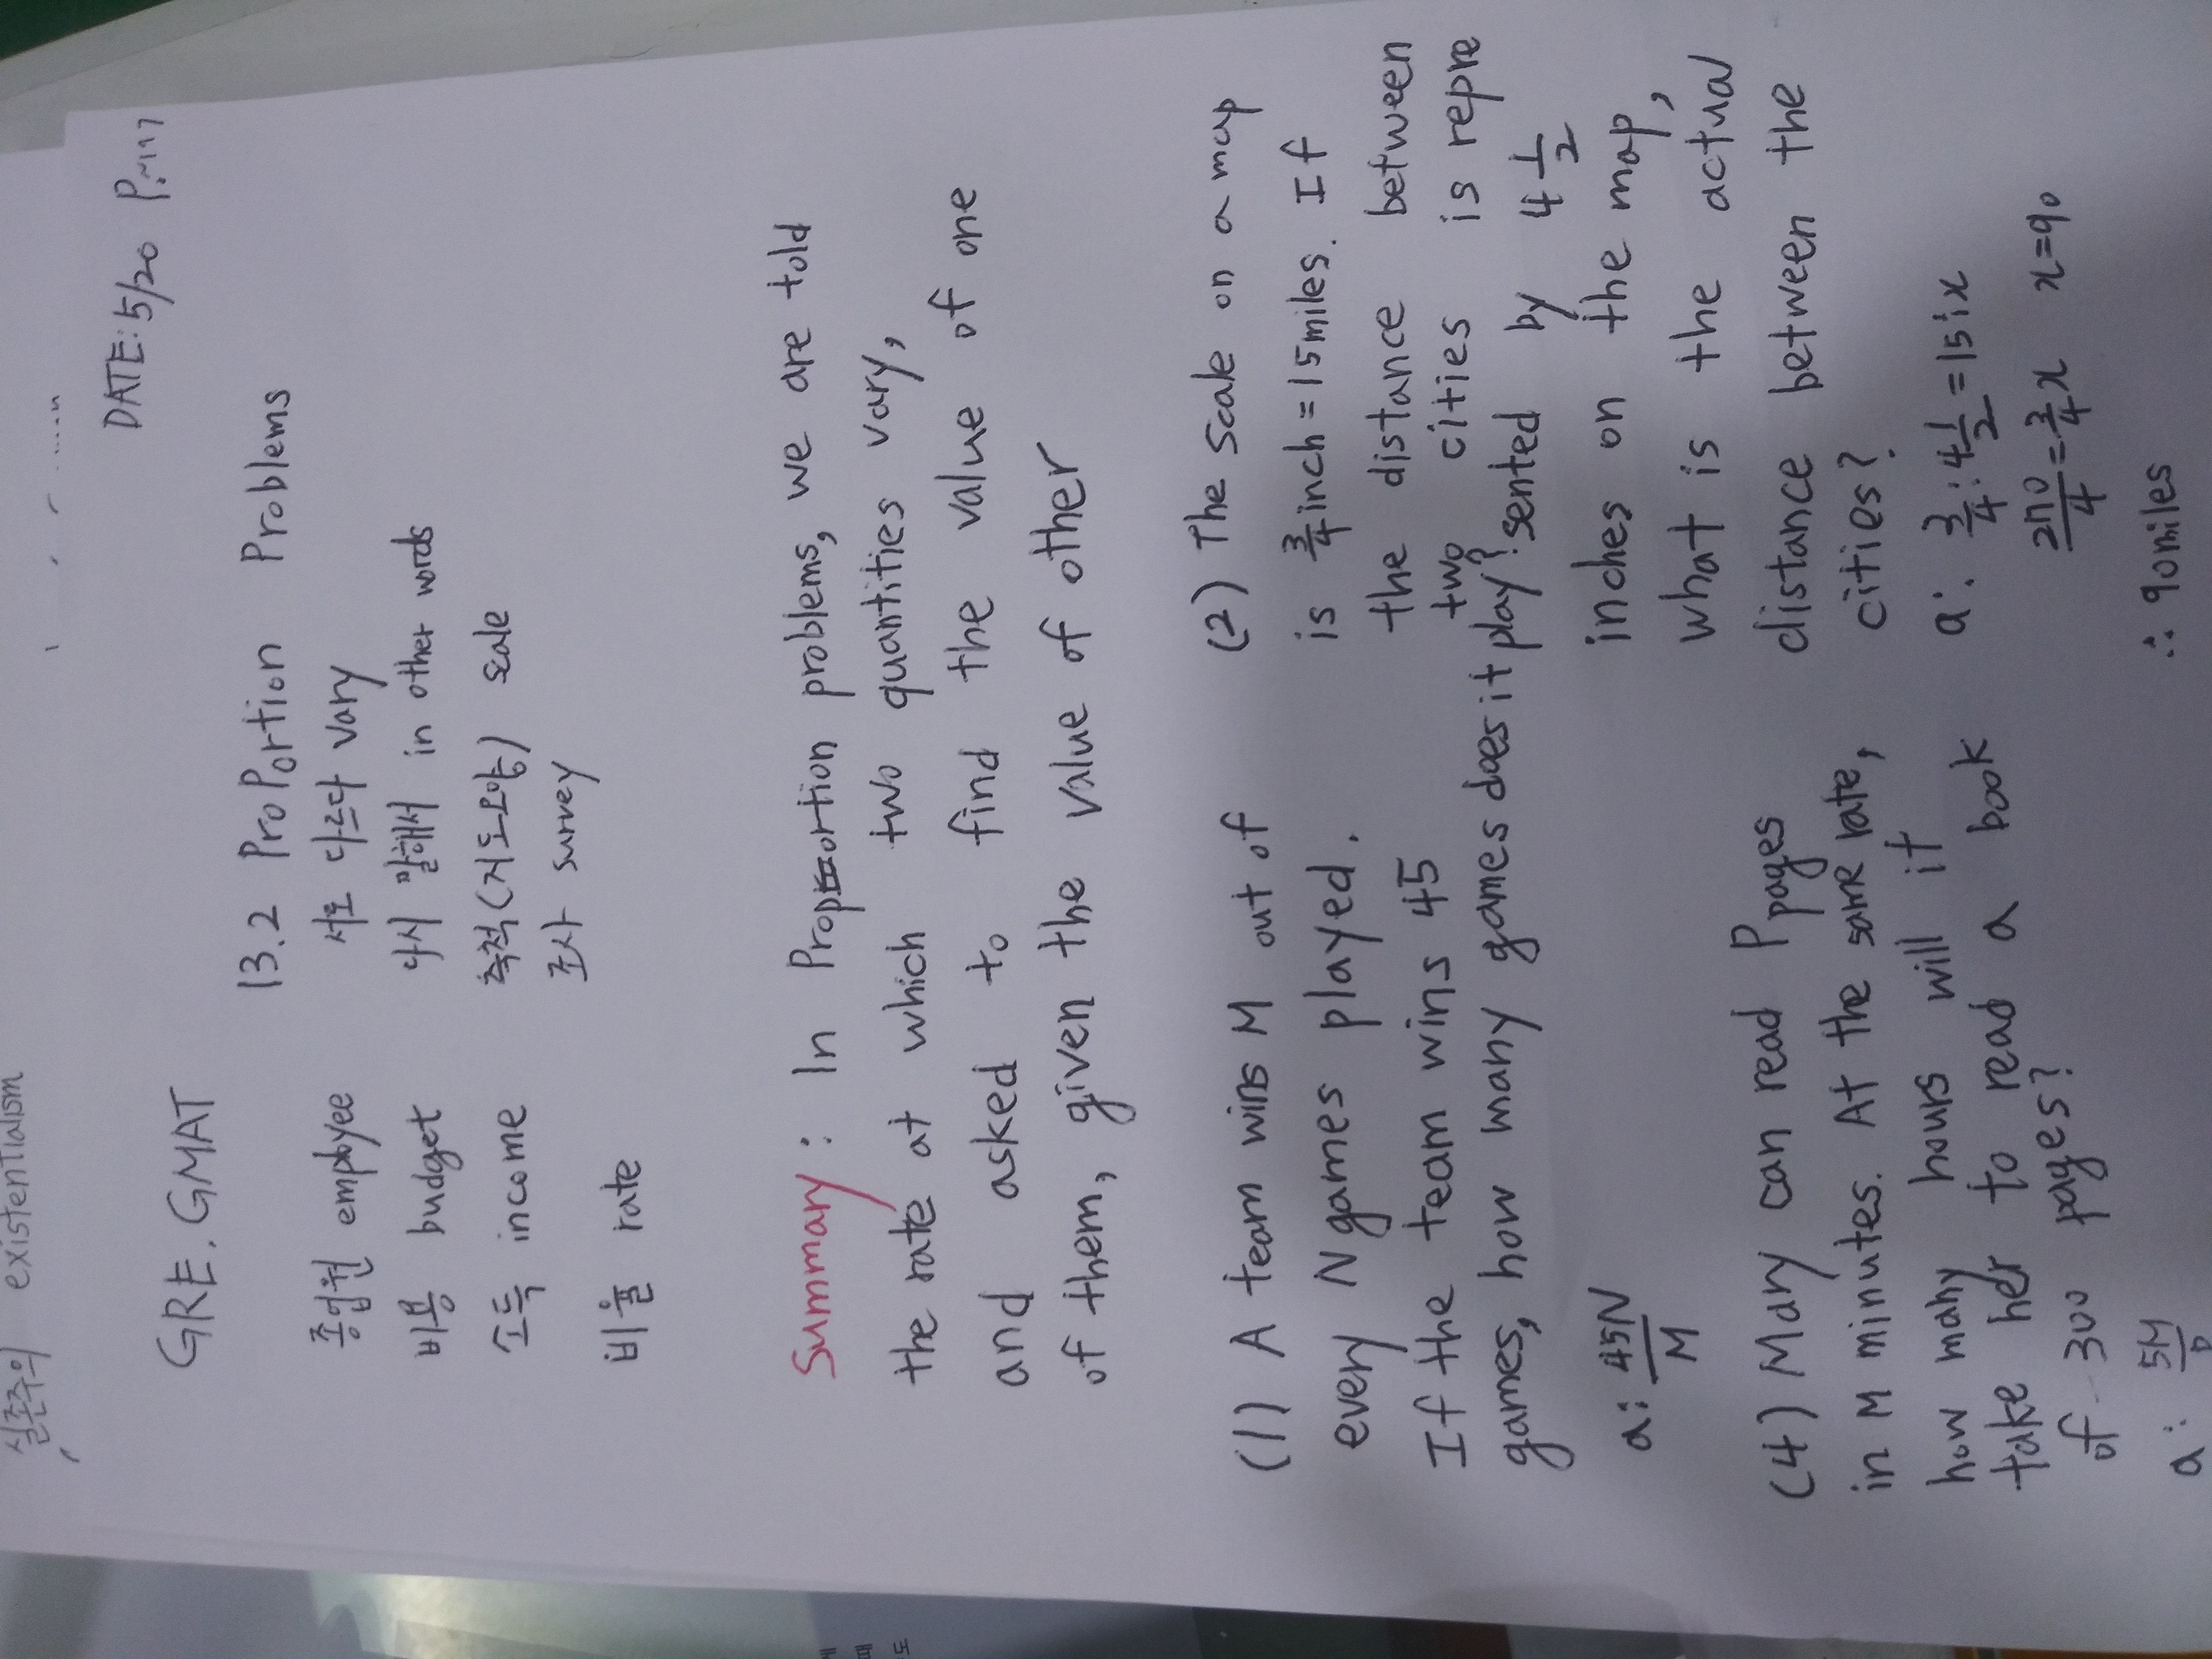 실존주의 existentialism
DATE: 5/20
GRE. GMAT
13.2 ProPortion Problems
종업원 employee
서로 다르다 vary
비용 budget
다시 말해서 in other words
소득 income
축척(지도요약) scale
비율 rate
조사 survey
Summary : In Proportion problems, we are told
the rate at which two quantities vary,
and asked to find the value of one
of them, given the value of other
(1) A team wins M out of
every N games played.
If the team wins 45
games, how many games does it play?
a: 45N/M
(2) The scale on a map
is 3/4 inch = 15 miles. If
the distance between
two cities is repre
sented by 4 1/2
inches on the map,
what is the actual
distance between the
cities?
a: 3/4 : 4 1/2 = 15 : x
270/4 = 3/4 x x=90
∴ 90 miles
(4) Mary can read P pages
in M minutes. At the same rate,
how many hours will it
take her to read a book
of 300 pages?
a: 5M/P